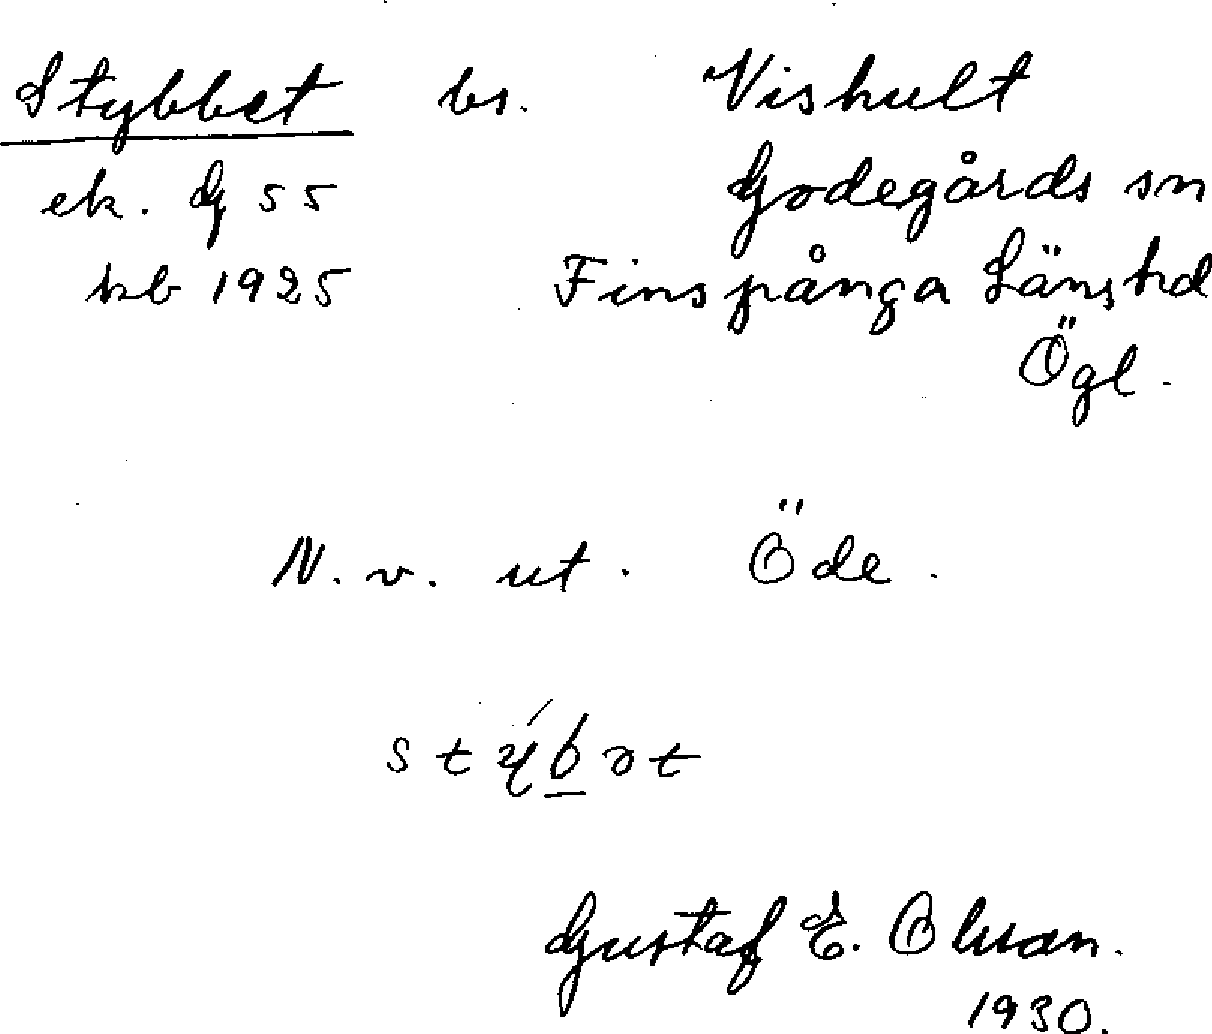 Stybbet bs. Vishult
ek. G 55 Godegårds sn
kb 1925 Finspånga Länshd
Ögl.
N. v. ut. Öde.
stýb̲ət
Gustaf E. Olson.
1930.